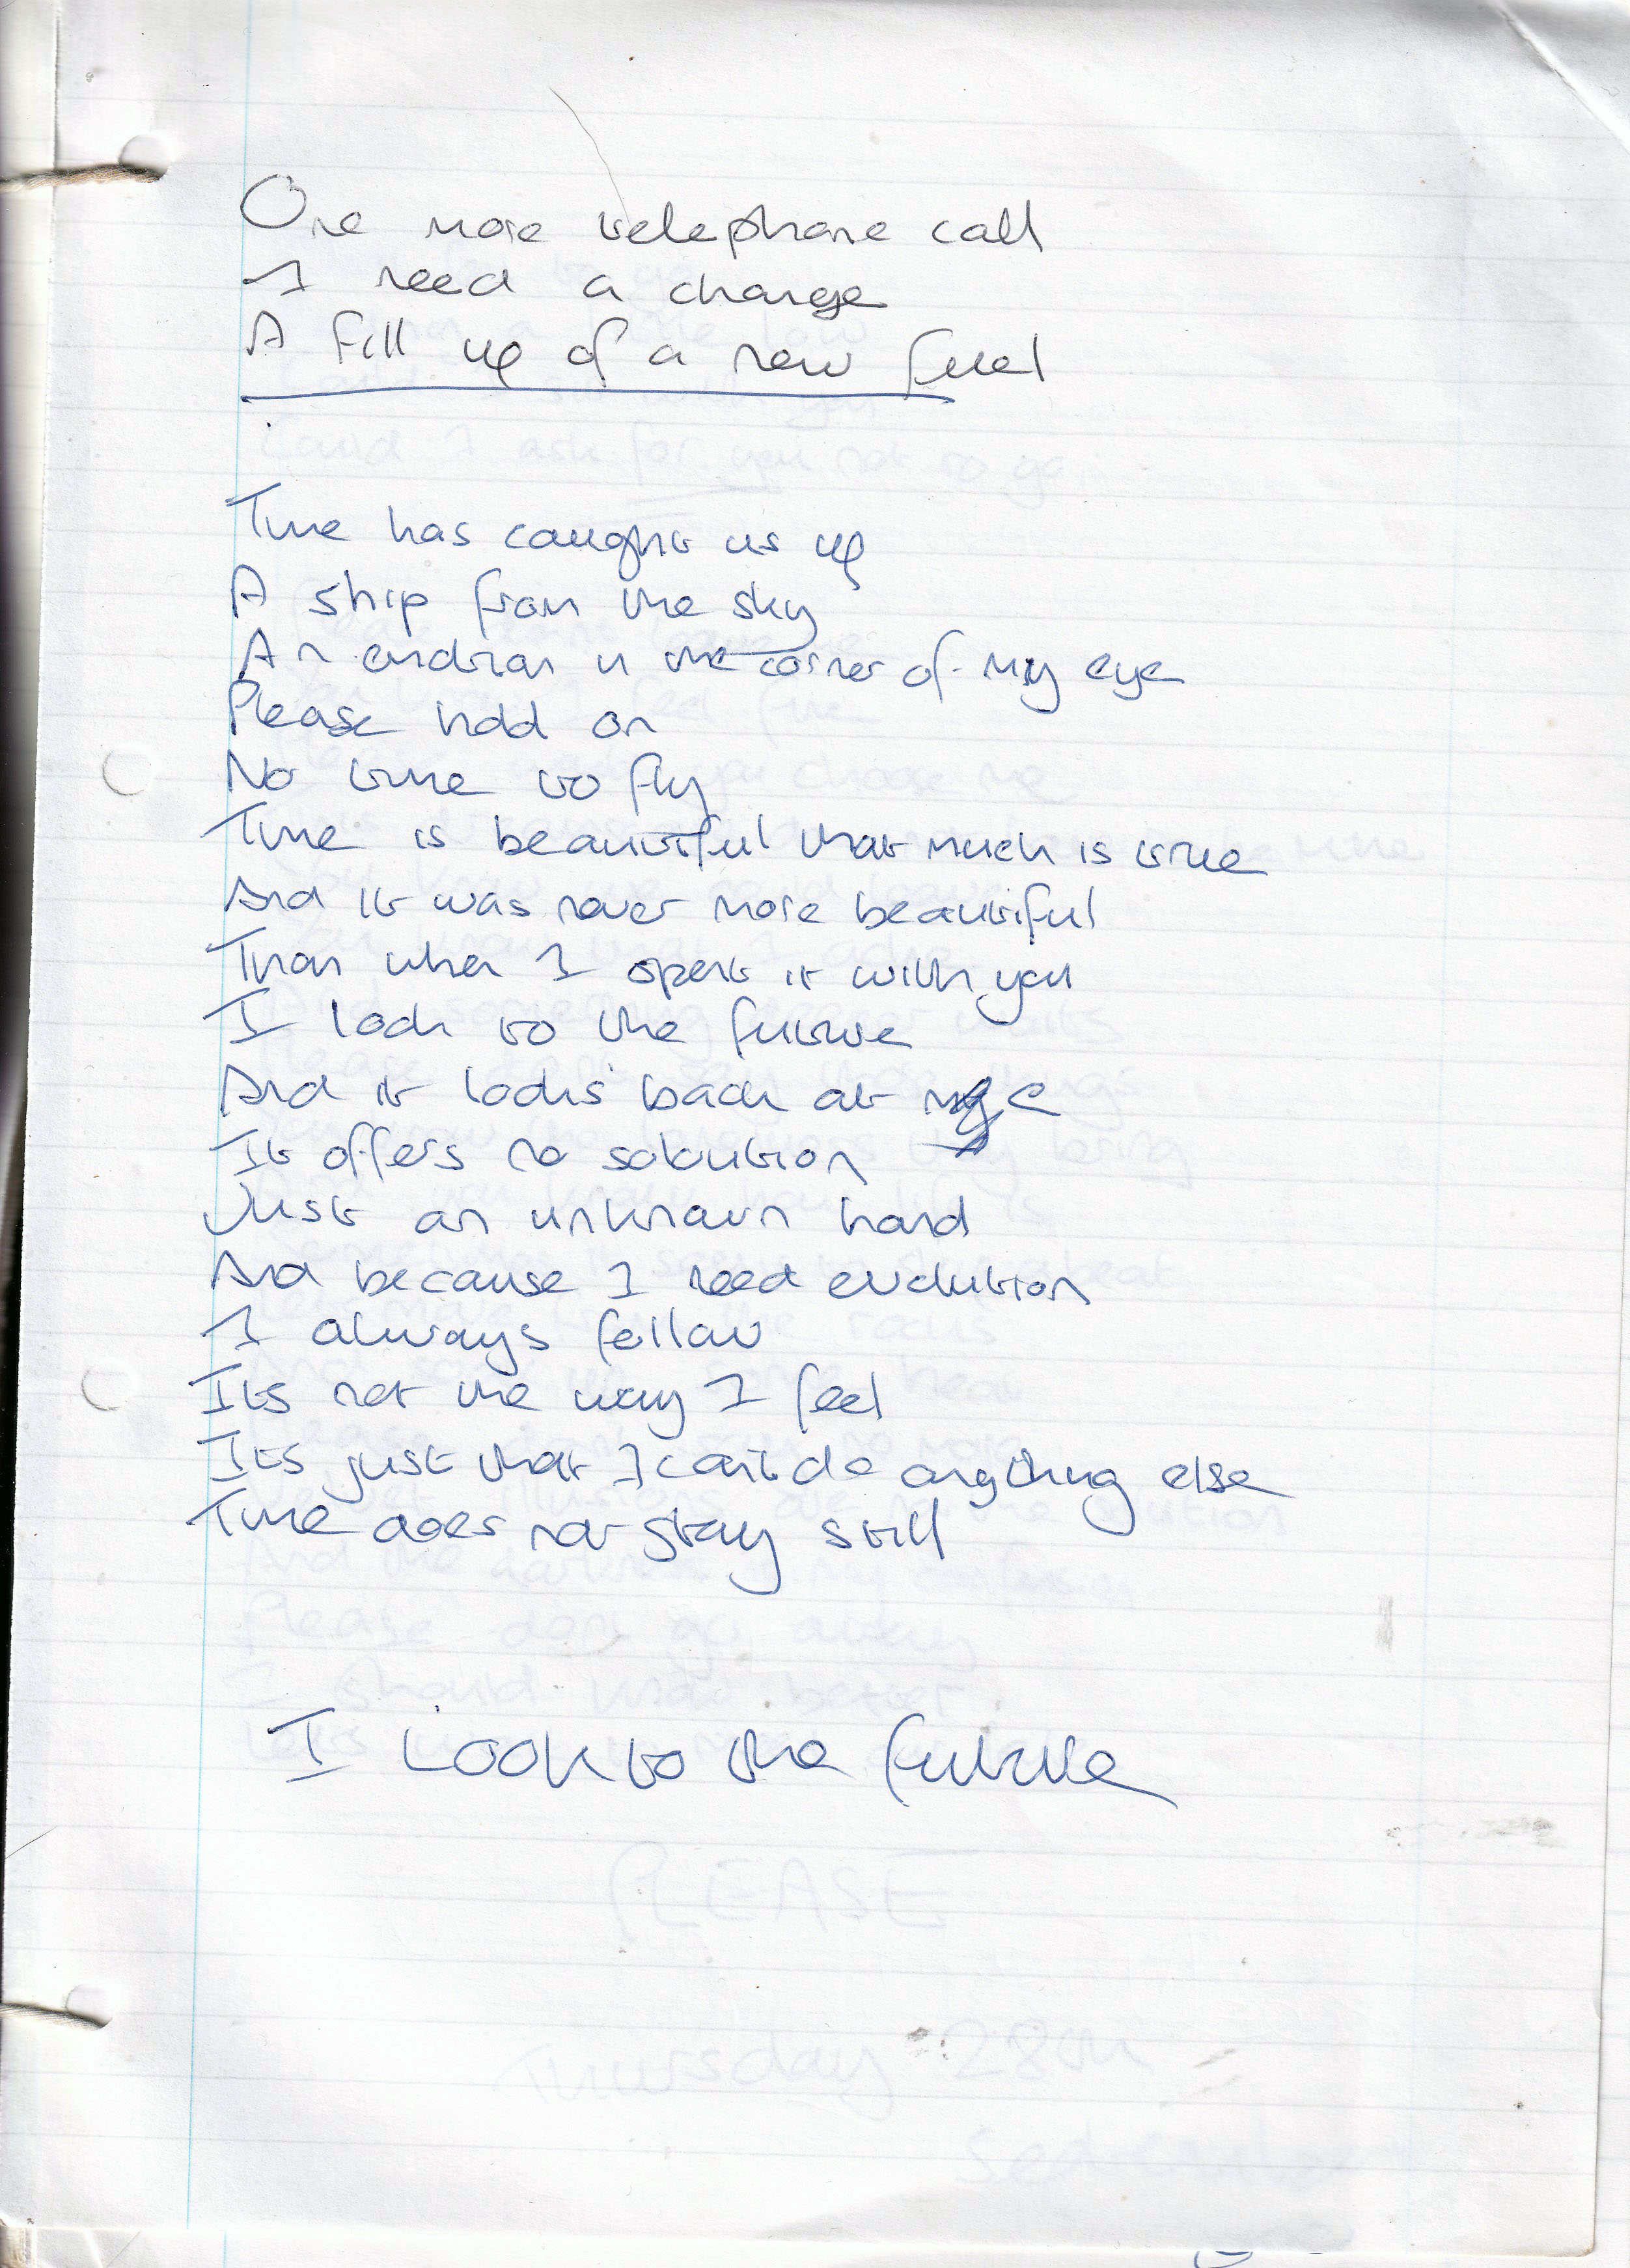 One more telephone call
I need a change
A fill up of a new fuel
Time has caught us up
A ship from the sky
An in the corner of my eye
Please hold on
No time to fly
Time is beautiful that much is true
And it was never more beautiful
Than when I spent it with you
I look to the future
And it looks back at me
It offers no soloution
Just an unknown hand
And because I need evolution
I always follow
Its not the way I feel
Its just that I can't do anything else
Time does not stay still
I Look to the future
PLEASE
Thursday 28th